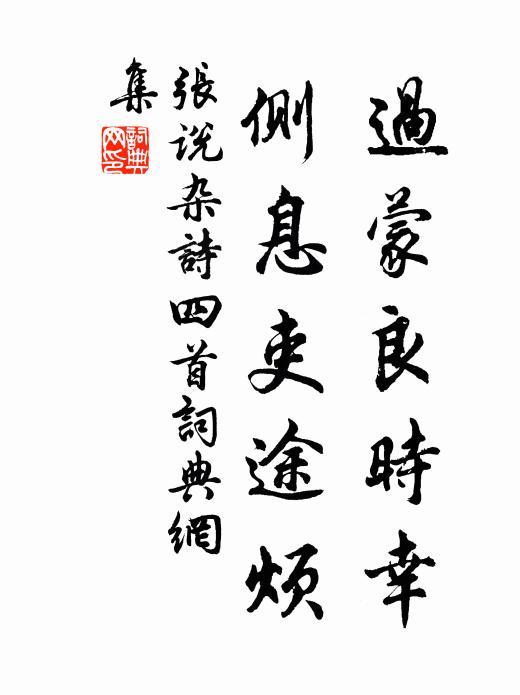 過蒙良時幸
側息吏途煩
張说杂詩四首詞典網
集
詞典
网印